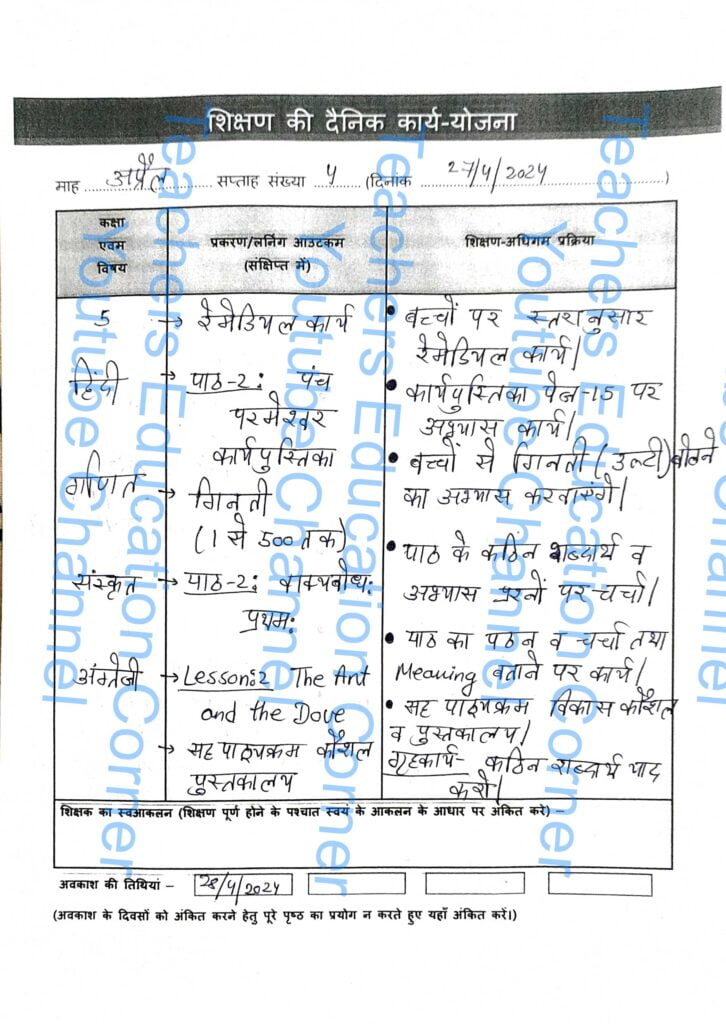 शिक्षण की दैनिक कार्य-योजना
माह अप्रैल सप्ताह संख्या 4 (दिनांक 27/4/2024)
कक्षा एवम विषय
प्रकरण/लर्निंग आउटकम (संक्षिप्त में)
शिक्षण-अधिगम प्रक्रिया
5
→ रेमेडियल कार्य
• बच्चों पर स्तरानुसार
रेमेडियल कार्य।
हिंदी
→ पाठ-2: पंच
परमेश्वर
कार्यपुस्तिका
• कार्यपुस्तिका पेज-15 पर
अभ्यास कार्य।
गणित
→ गिनती
(1 से 500 तक)
• बच्चों से गिनती (उल्टी) बोलने
का अभ्यास करवाएंगे।
संस्कृत
→ पाठ-2: वाक्यबोधः
प्रथमः
• पाठ के कठिन शब्दार्थ व
अभ्यास प्रश्नों पर चर्चा।
अंग्रेजी
→ Lesson:2 The Ant
and the Dove
• पाठ का पठन व चर्चा तथा
Meaning बताने पर कार्य।
→ सह पाठ्यक्रम कौशल
पुस्तकालय
• सह पाठ्यक्रम विकास कौशल
व पुस्तकालय।
गृहकार्य- कठिन शब्दार्थ याद
करो।
शिक्षक का स्वआकलन (शिक्षण पूर्ण होने के पश्चात स्वयं के आकलन के आधार पर अंकित करे) –
अवकाश की तिथियां – 28/4/2024
(अवकाश के दिवसों को अंकित करने हेतु पूरे पृष्ठ का प्रयोग न करते हुए यहाँ अंकित करें।)
Teachers Education Corner
Youtube Channel
Teachers Education Corner
Youtube Channel
Teachers Education Corner
Youtube Channel